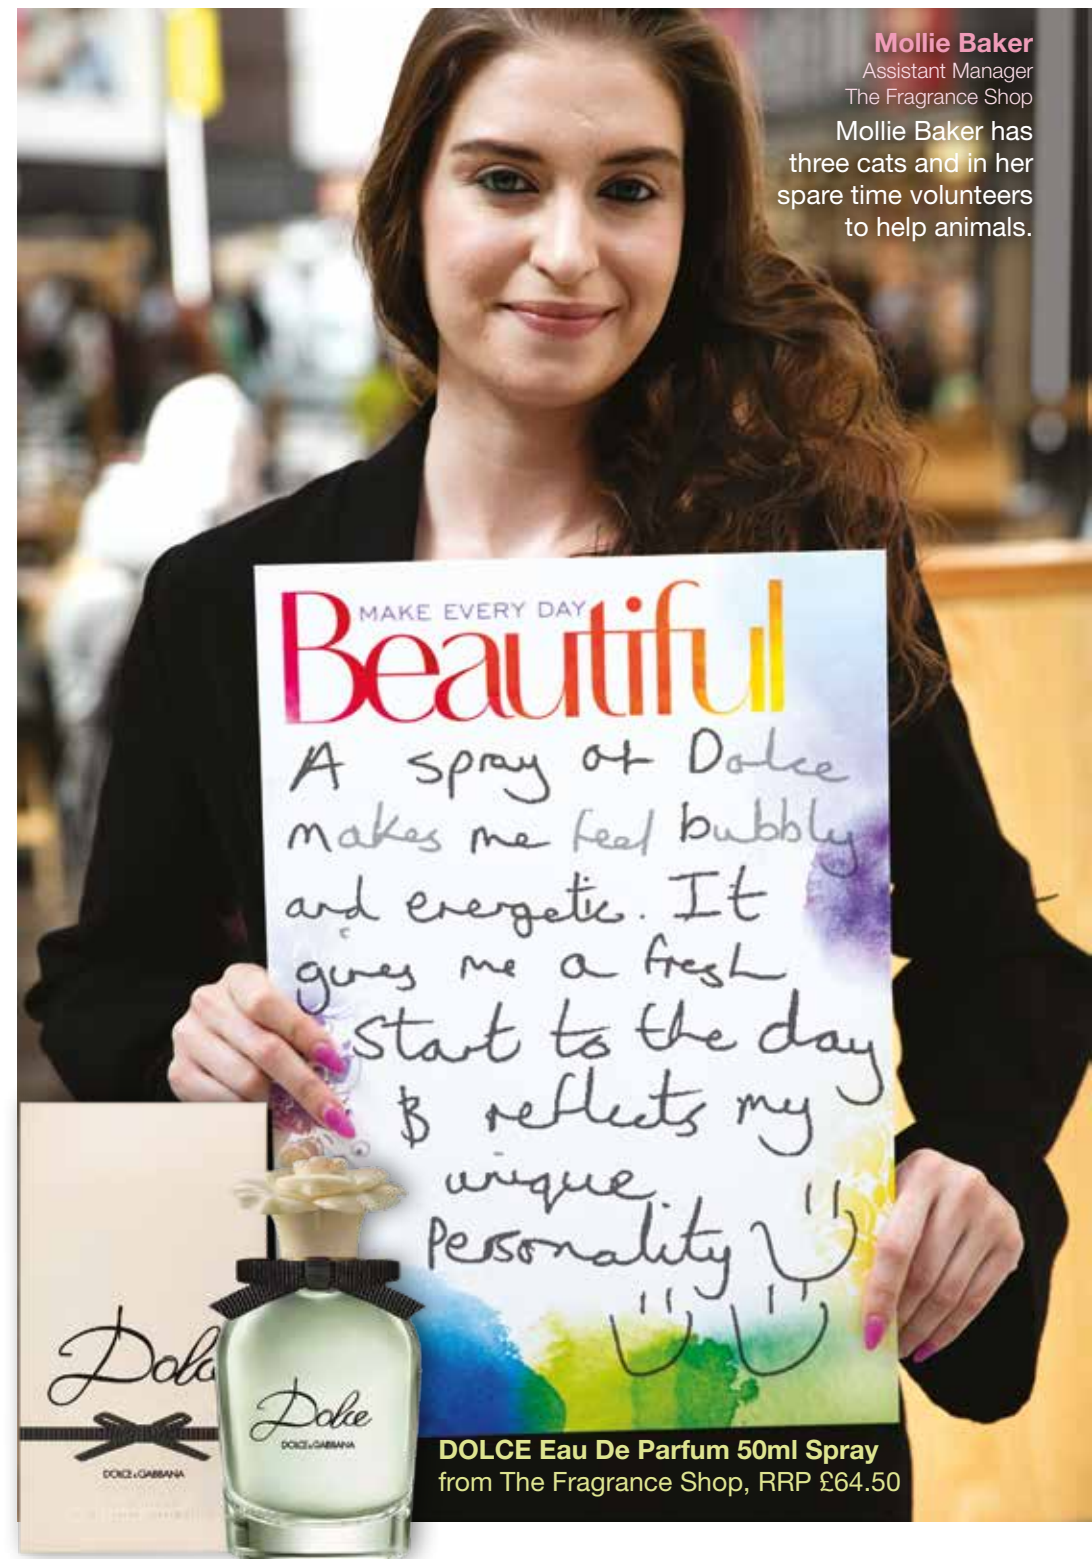 Mollie Baker
Assistant Manager
The Fragrance Shop
Mollie Baker has
three cats and in her
spare time volunteers
to help animals.
MAKE EVERY DAY
Beautiful
A spray of Dolce
makes me feel bubbly
and energetic. It
gives me a fresh
start to the day
& reflects my
unique
Personality
Dolc
DOLCE & GABBANA
Dolce
DOLCE & GABBANA
DOLCE Eau De Parfum 50ml Spray
from The Fragrance Shop, RRP £64.50